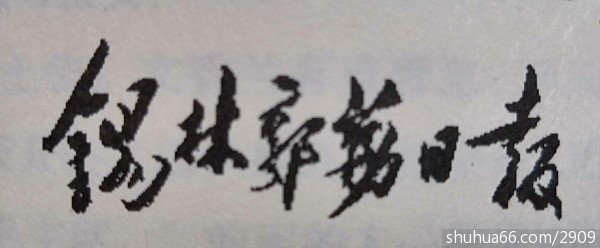 锡林郭勒日报
shuhua66.com/2909